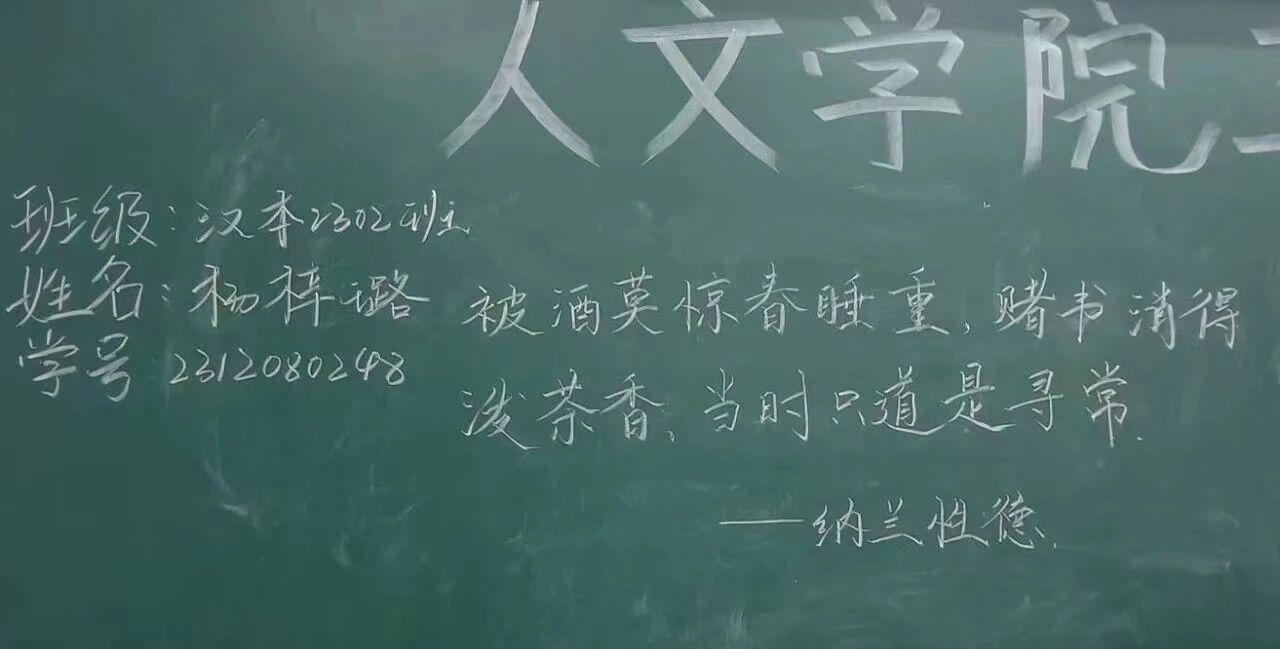 人文学院
班级：汉本2302班
姓名：杨梓璐
学号 2312080248
被酒莫惊春睡重，赌书消得
泼茶香，当时只道是寻常.
——纳兰性德.